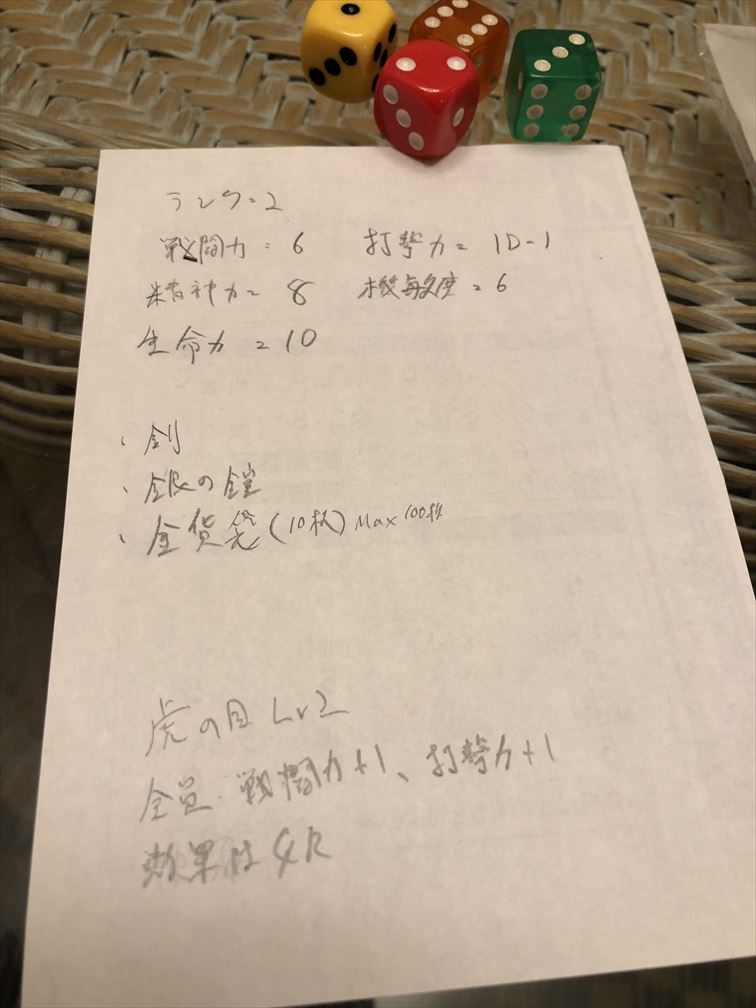 ランク=2
戦闘力=6 打撃力=1D-1
精神力=8 機敏度=6
生命力=10
・剣
・銀の鎧
・金貨袋(10枚)Max100枚
虎の目Lv2
全員 戦闘力+1、打撃力+1
効果は4R